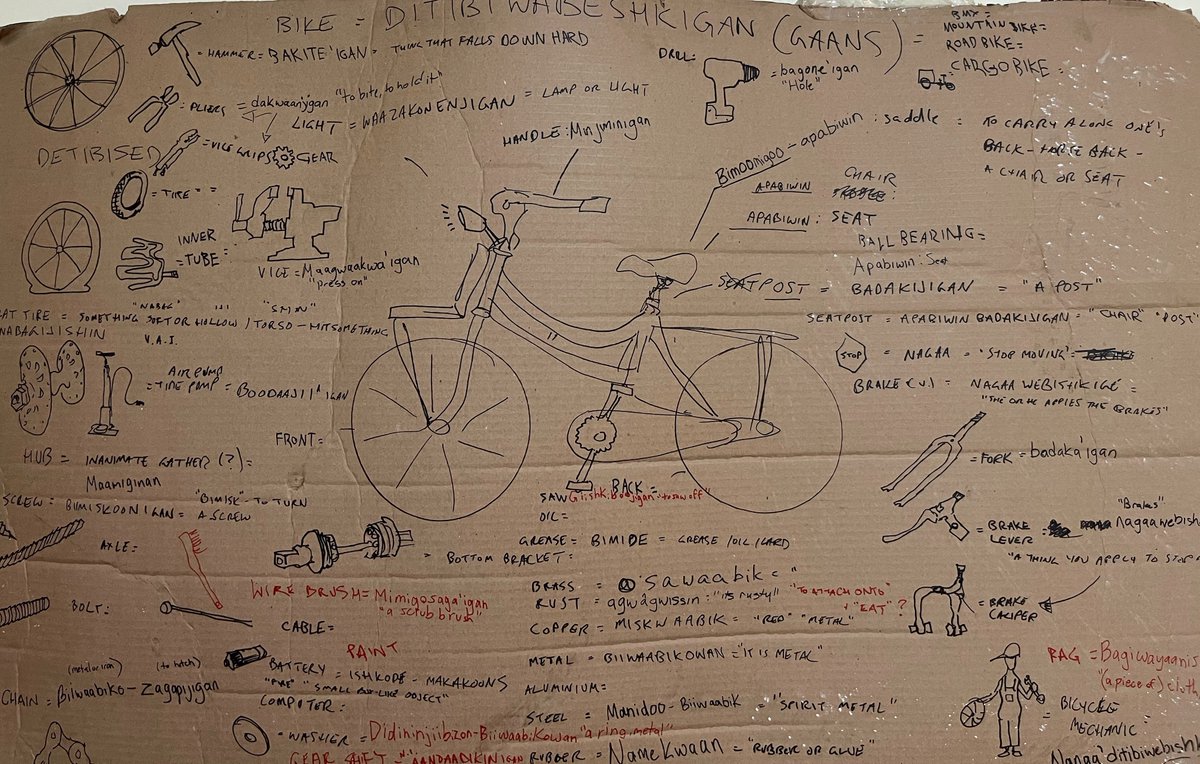 BIKE = DITIBIWABESHKIGAN (GAANS) =
BMX =
MOUNTAIN BIKE =
ROAD BIKE =
CARGO BIKE =
= HAMMER = BAKITE'IGAN = THING THAT FALLS DOWN HARD
DRILL =
= bagone'igan
"Hole"
= PLIERS = dakwaanjigan "to bite, to hold it"
LIGHT = WAAZAKONENJIGAN = LAMP OR LIGHT
HANDLE: Minjiminigan
DETIBISED
= VICE GRIPS
GEAR
= TIRE =
Bimoomigoo - apabiwin : saddle = TO CARRY ALONG ONE'S
BACK - HORSE BACK -
A CHAIR OR SEAT
APABIWIN CHAIR
APABIWIN : SEAT
BALL BEARING =
Apabiwin : Seat
INNER
= TUBE =
VICE = Maagwaakwa'igan
"press on"
SEATPOST = BADAKIJIGAN = "A POST"
SEATPOST = APABIWIN BADAKIJIGAN = "CHAIR" "POST"
AT TIRE = SOMETHING SOFT OR HOLLOW / TORSO - HIT SOMETHING
NABAGIJISHIN
V.A.I.
STOP
= NAGAA = "STOP MOVING" =
AIR PUMP
= TIRE PUMP = BOODAAJII'IGAN
BRAKE (V) = NAGAAWEBISHKIGE =
"SHE OR HE APPLIES THE BRAKES"
FRONT =
HUB = INANIMATE GATHER (?) =
Maamiginan
= FORK = badaka'igan
BACK =
SCREW = BIMISKOONIGAN = A SCREW
"BIMISK" - TO TURN
SAW Giishkiboojigan "to saw off"
OIL =
AXLE =
GREASE = BIMIDE = GREASE / OIL / LARD
= BOTTOM BRACKET =
"Brakes"
= BRAKE
LEVER = nagaawebish
"A THING YOU APPLY TO STOP
WIRE BRUSH = Mimigosaga'igan
"a scrub brush"
BRASS = Osawaabik = "
RUST = agwagwissin : "its rusty" "TO ATTACH ONTO
+ "EAT" ?
COPPER = MISKWAABIK = "RED" "METAL"
= BRAKE
CALIPER
BOLT =
CABLE =
PAINT
BATTERY = ISHKODE - MAKAKOONS
"FIRE" "SMALL BOX-LIKE OBJECT"
METAL = BIIWAABIKOWAN = "IT IS METAL"
ALUMINIUM =
(metal or iron) (to hitch)
CHAIN = Biiwaabiko - Zagapijigan
COMPUTER =
STEEL = Manidoo - Biiwaabik = "SPIRIT METAL"
RAG = Bagiwayaanis
"(a piece of) cloth
= BICYCLE
MECHANIC =
Nanaa'ditibiwebishk
= WASHER = Didininjiibizon - Biiwaabikowan "a ring, metal"
GEAR SHIFT = "AANDAADIKINIGAN
RUBBER = Namekwaan = "RUBBER OR GLUE"